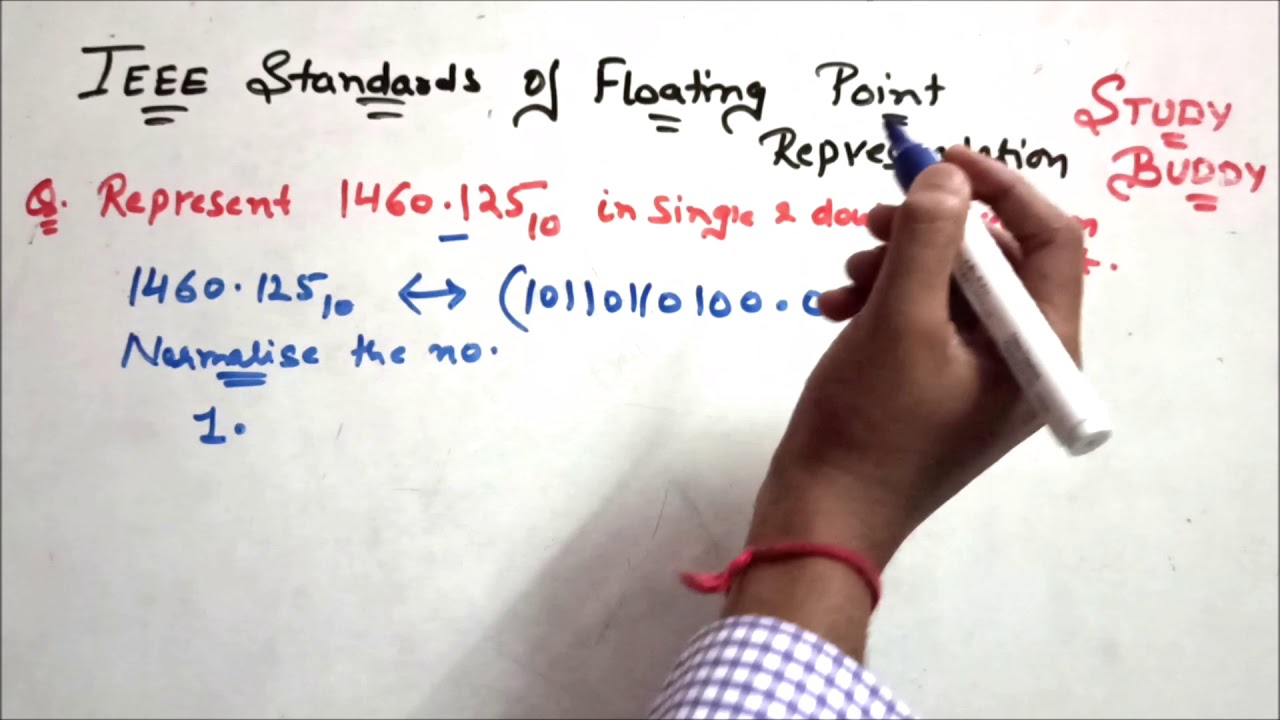 IEEE Standards of Floating Point
STUDY
BUDDY
Q. Represent 1460.125₁₀ in single &
1460.125₁₀ ↔ (10110110100.0
Normalise the no.
1.